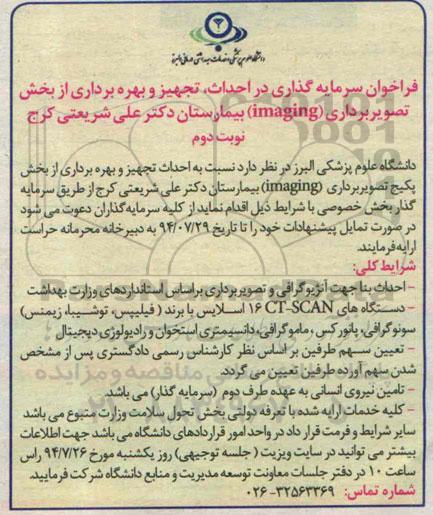 دانشگاه علوم پزشکی و خدمات بهداشتی درمانی البرز
فراخوان سرمایه گذاری در احداث، تجهیز و بهره برداری از بخش
تصویربرداری (imaging) بیمارستان دکتر علی شریعتی کرج
نوبت دوم
دانشگاه علوم پزشکی البرز در نظر دارد نسبت به احداث تجهیز و بهره برداری از بخش
پکیج تصویربرداری (imaging) بیمارستان دکتر علی شریعتی کرج از طریق سرمایه
گذار بخش خصوصی با شرایط ذیل اقدام نماید از کلیه سرمایه گذاران دعوت می شود
در صورت تمایل پیشنهادات خود را تا تاریخ ۹۴/۰۷/۲۹ به دبیرخانه محرمانه حراست
ارایه فرمایند.
شرایط کلی:
- احداث بنا جهت آنژیوگرافی و تصویربرداری براساس استانداردهای وزارت بهداشت
- دستگاه های CT-SCAN ۱۶ اسلایس با برند (فیلیپس، توشیبا، زیمنس)
سونوگرافی، پانورکس، ماموگرافی، دانسیمتری استخوان و رادیولوژی دیجیتال
- تعیین سهم طرفین بر اساس نظر کارشناس رسمی دادگستری پس از مشخص
شدن سهم آورده طرفین تعیین می گردد.
- تامین نیروی انسانی به عهده طرف دوم (سرمایه گذار) می باشد.
- کلیه خدمات ارایه شده با تعرفه دولتی بخش تحول سلامت وزارت متبوع می باشد
سایر شرایط و فرمت قرار داد در واحد امور قراردادهای دانشگاه می باشد جهت اطلاعات
بیشتر می توانید در سایت ویزیت (جلسه توجیهی) روز یکشنبه مورخ ۹۴/۷/۲۶ راس
ساعت ۱۰ در دفتر جلسات معاونت توسعه مدیریت و منابع دانشگاه شرکت فرمایید.
شماره تماس: ۳۲۵۶۳۳۶۹-۰۲۶